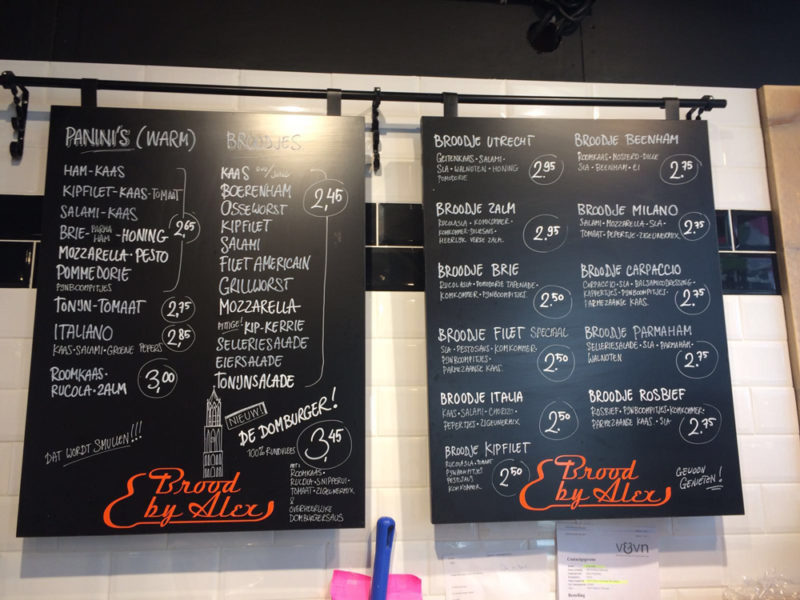 PANINI'S (WARM)
HAM-KAAS
KIPFILET-KAAS-TOMAAT
SALAMI-KAAS
BRIE-PARMA HAM-HONING
MOZZARELLA-PESTO
POMMEDORIE
PIJNBOOMPITJES
2,65
TONIJN-TOMAAT 2,75
ITALIANO 2,85
KAAS-SALAMI-GROENE PEPERS
ROOMKAAS-
RUCOLA-ZALM 3,00
DAT WORDT SMULLEN!!!
BROODJES
KAAS OUD/JONG
BOERENHAM
OSSEWORST
KIPFILET
SALAMI
FILET AMERICAIN
GRILLWORST
MOZZARELLA-
PITTIGE! KIP-KERRIE
SELLERIESALADE
EIERSALADE
TONIJNSALADE
2,45
NIEUW!
DE DOMBURGER!
100% RUNDVLEES 3,45
MET:
ROOMKAAS-
RUCOLA-SNIPPERUI-
TOMAAT-ZIGEUNERMIX
&
OVERHEERLIJKE
DOMBURGERSAUS
Brood
by Alex
BROODJE UTRECHT
GEITENKAAS • SALAMI •
SLA • WALNOTEN • HONING
POMODORIE
2.95
BROODJE ZALM
RUCOLASLA • KOMKOMMER •
KOMKOMMER-DILLESAUS •
HEERLIJK VERSE ZALM.
2.95
BROODJE BRIE
RUCOLASLA • POMODORIE TAPENADE •
KOMKOMMER • PIJNBOOMPITJES.
2.50
BROODJE FILET SPECIAAL
SLA • PESTOSAUS • KOMKOMMER •
PIJNBOOMPITJES •
PARMEZAANSE KAAS.
2.50
BROODJE ITALIA
KAAS • SALAMI • CHORIZO •
PEPERTJES • ZIGEUNERMIX.
2.50
BROODJE KIPFILET
RUCOLASLA • TOMAAT
PIJNBOOMPITJES
PESTOSAUS
KOMKOMMER
2.50
BROODJE BEENHAM
ROOMKAAS • MOSTERD-DILLE
SLA • BEENHAM • EI
2.75
BROODJE MILANO
SALAMI • MOZZARELLA • SLA •
TOMAAT • PEPERTJE • ZIGEUNERMIX.
2.75
BROODJE CARPACCIO
CARPACCIO • SLA • BALSAMICODRESSING •
KAPPERTJES • PIJNBOOMPITJES •
PARMEZAANSE KAAS.
2.75
BROODJE PARMAHAM
SELLERIESALADE • SLA • PARMAHAM •
WALNOTEN
2.75
BROODJE ROSBIEF
ROSBIEF • PIJNBOOMPITJES • KOMKOMMER •
PARMEZAANSE KAAS • SLA
2.75
Brood
by Alex
GEWOON
GENIETEN!
v&vn